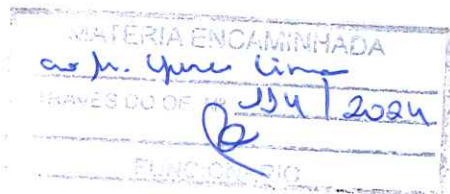 MATERIA ENCAMINHADA
ao Sr. Yure Lima
TRAVÉS DO OF. Nº 194 / 2024
FUNCIONÁRIO